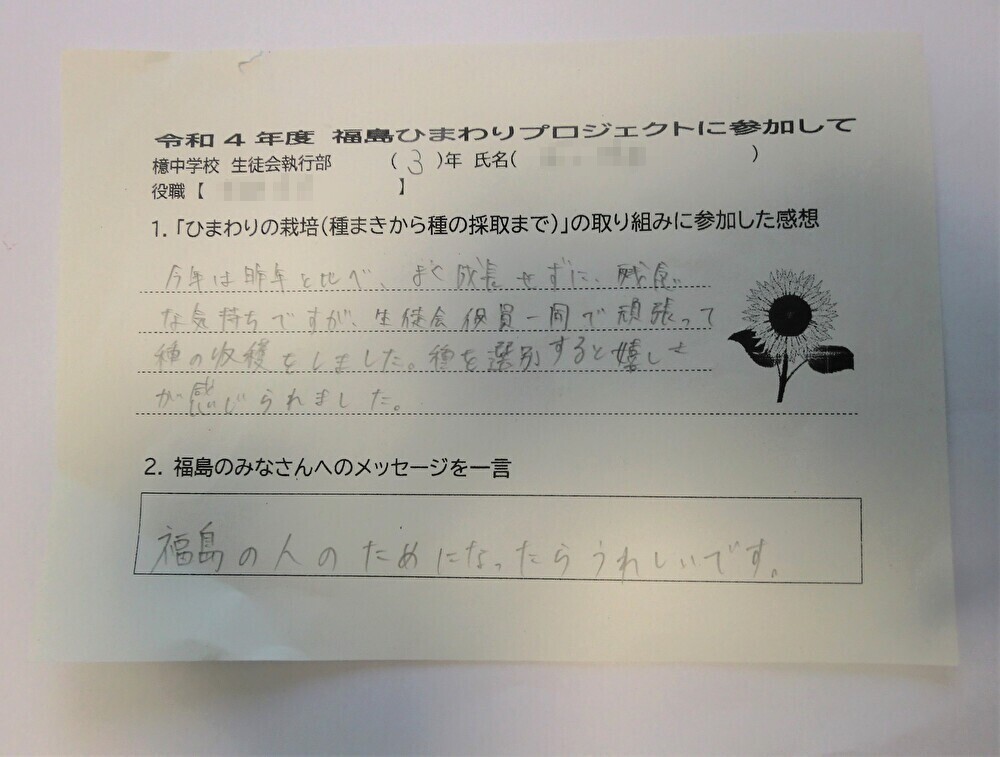 令和4年度 福島ひまわりプロジェクトに参加して
檍中学校 生徒会執行部 (3)年 氏名( )
役職【 】
1.「ひまわりの栽培(種まきから種の採取まで)」の取り組みに参加した感想
今年は昨年と比べ、よく成長せずに、残念
な気持ちですが、生徒会役員一同で頑張って
種の収穫をしました。種を選別すると嬉しさ
が感じられました。
2. 福島のみなさんへのメッセージを一言
福島の人のためになったらうれしいです。